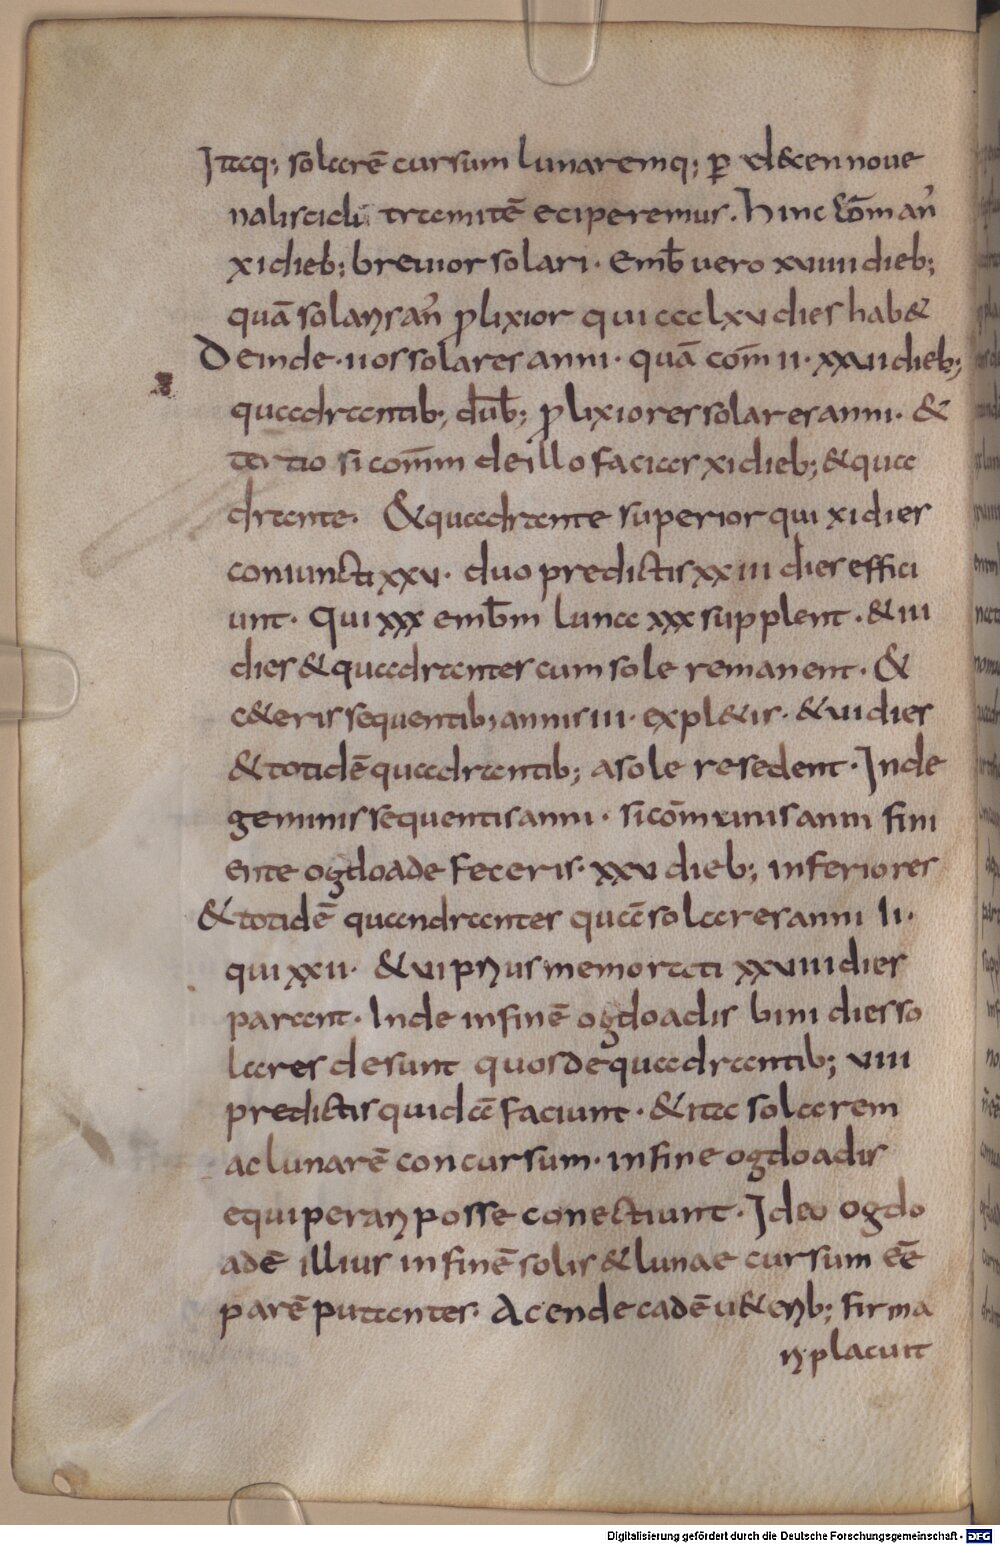 Itaq; solarē cursum lunaremq; ꝑ xl&cennoue
naliscicli tramitē eciperemus. Hinc cōm an̄
xi dieb; breuior solari. Emb̄ uero xuiiii dieb;
quā solaris an̄ plixior qui ccclxu dies hab&
Deinde. uos solares anni. quā com̄ ii. xxii dieb;
quadrantib; dūb; plixiores solares anni. &
tertio si com̄m de illo faciar xi dieb; & qua
drante. & quadrante superior qui xi dies
coniuncti xxu. duo predictis xxiii dies effici
unt. Qui xxx emb̄m lunae xxx supplent. & iii
dies & quadrantes cum sole remanent. &
c&eris sequentib; annis iii. expl&is. & uii dies
& totidē quadrantib; a sole resedent. Inde
geminis sequentis anni. si cōmunis anni fini
ente ogdoade feceris. xxu dieb; inferiores
& totidē quandrantes quā solares anni li.
qui xxii. & ui pnus memorati xxuiii dies
parant. Inde in finē ogdoadis bini dies so
lares desunt quos de quadrantib; uiii
predictis quidā faciunt. & ita solarem
ac lunarē concursum. in fine ogdoadis
equiperari posse conectiunt. Ideo ogdo
adē illius in finē solis & lunae cursum eē
parē putantes. Ac endecadē u&erib; firma
ri placuit
Digitalisierung gefördert durch die Deutsche Forschungsgemeinschaft - DFG